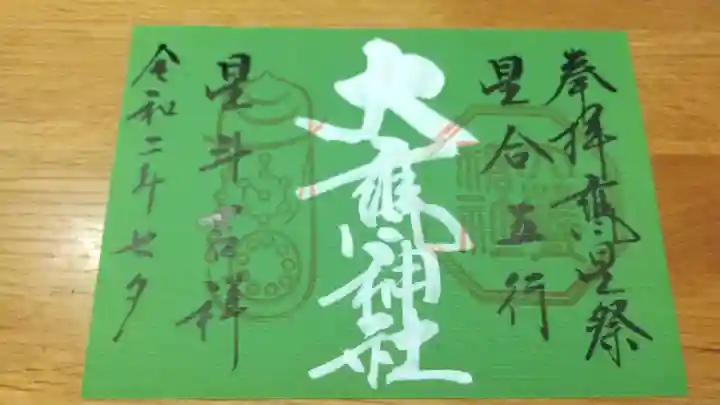 奉拝甕星祭
星合五行
大甕神社
星斗吉祥
令和二年七夕